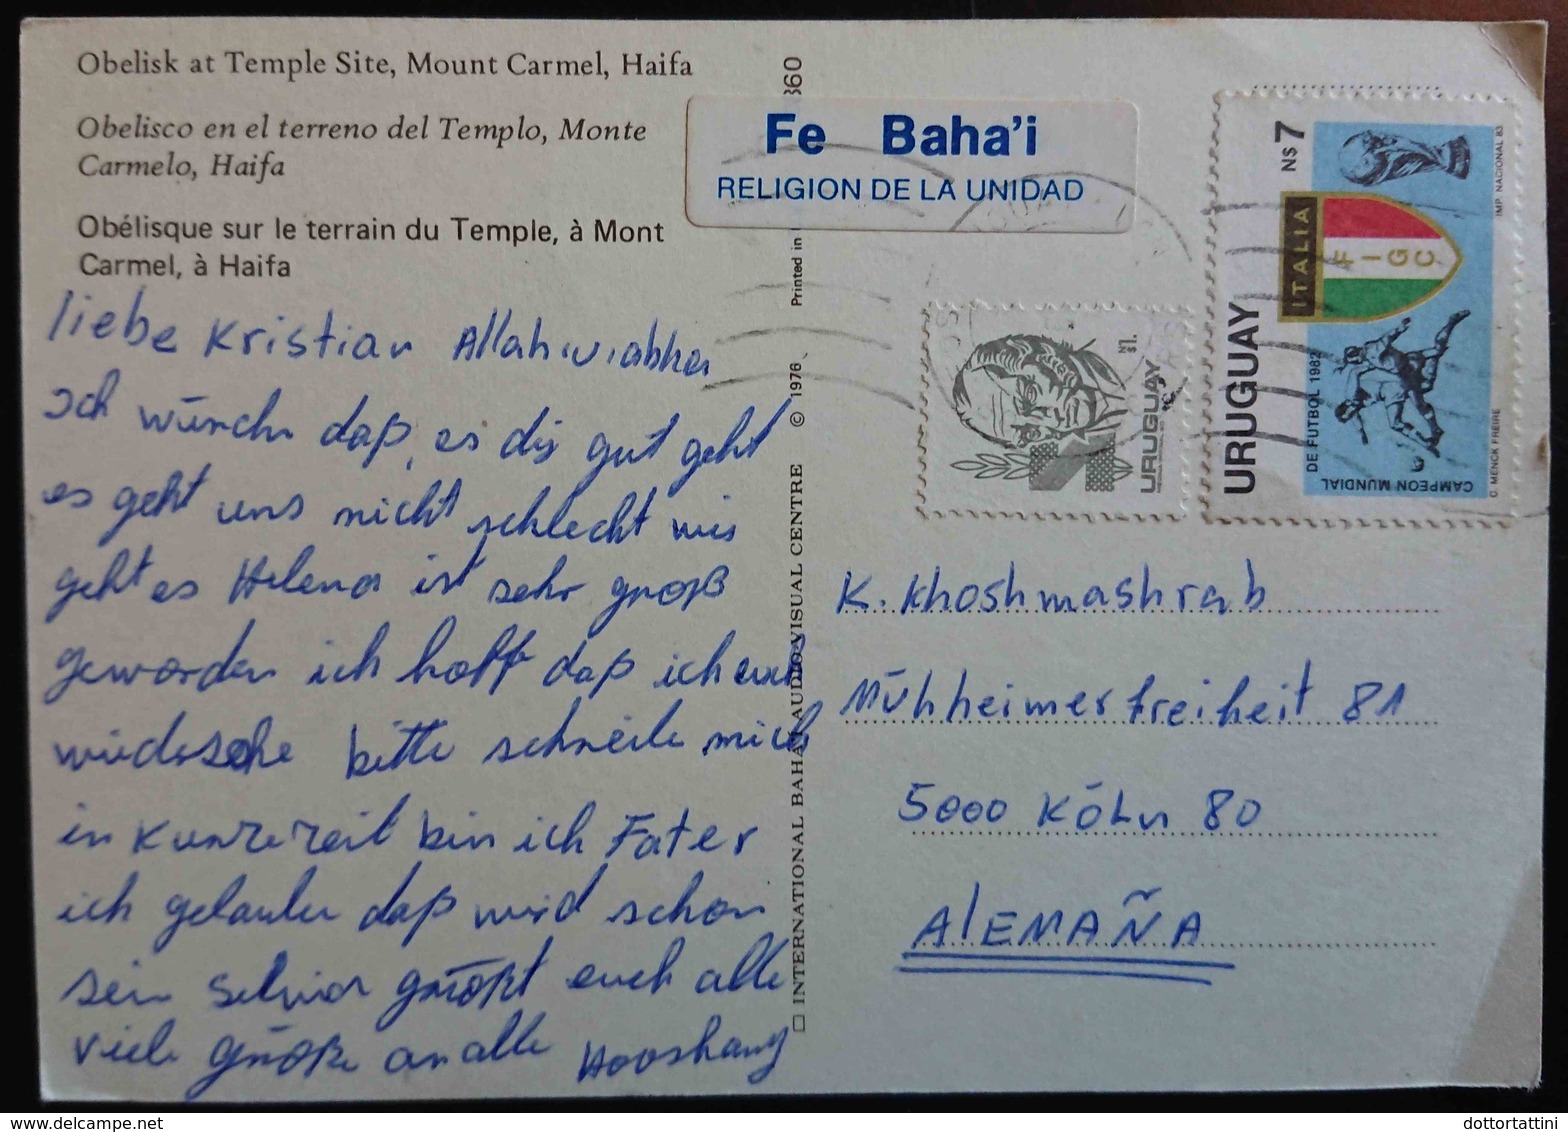 Obelisk at Temple Site, Mount Carmel, Haifa
Obelisco en el terreno del Templo, Monte
Carmelo, Haifa
Obélisque sur le terrain du Temple, à Mont
Carmel, à Haifa
liebe Kristian Allah,u,abha
Ich würche daß, es dis gut geht
es geht uns nicht schlecht wis
geht es Helena ist sehr groß
geworden ich hoff daß ich euch
bitte mich
in Kurzezeit bin ich Fater
ich gelaube daß wird schon
sein Selvia größt euch alle
viele größe an alle Hooshang
© 1976 Printed in
360
□ INTERNATIONAL BAHÁ'Í AUDIO-VISUAL CENTRE
Fe Baha'i
RELIGION DE LA UNIDAD
N$1.
URUGUAY
N$ 7
URUGUAY
ITALIA
FIGC
CAMPEON MUNDIAL
DE FUTBOL 1982
C. MENCK FREIRE
IMP. NACIONAL 83
K. Khoshmashrab
Mühheimerfreiheit 81
5000 Köhn 80
AlEMAÑA
© www.delcampe.net
dottortattini